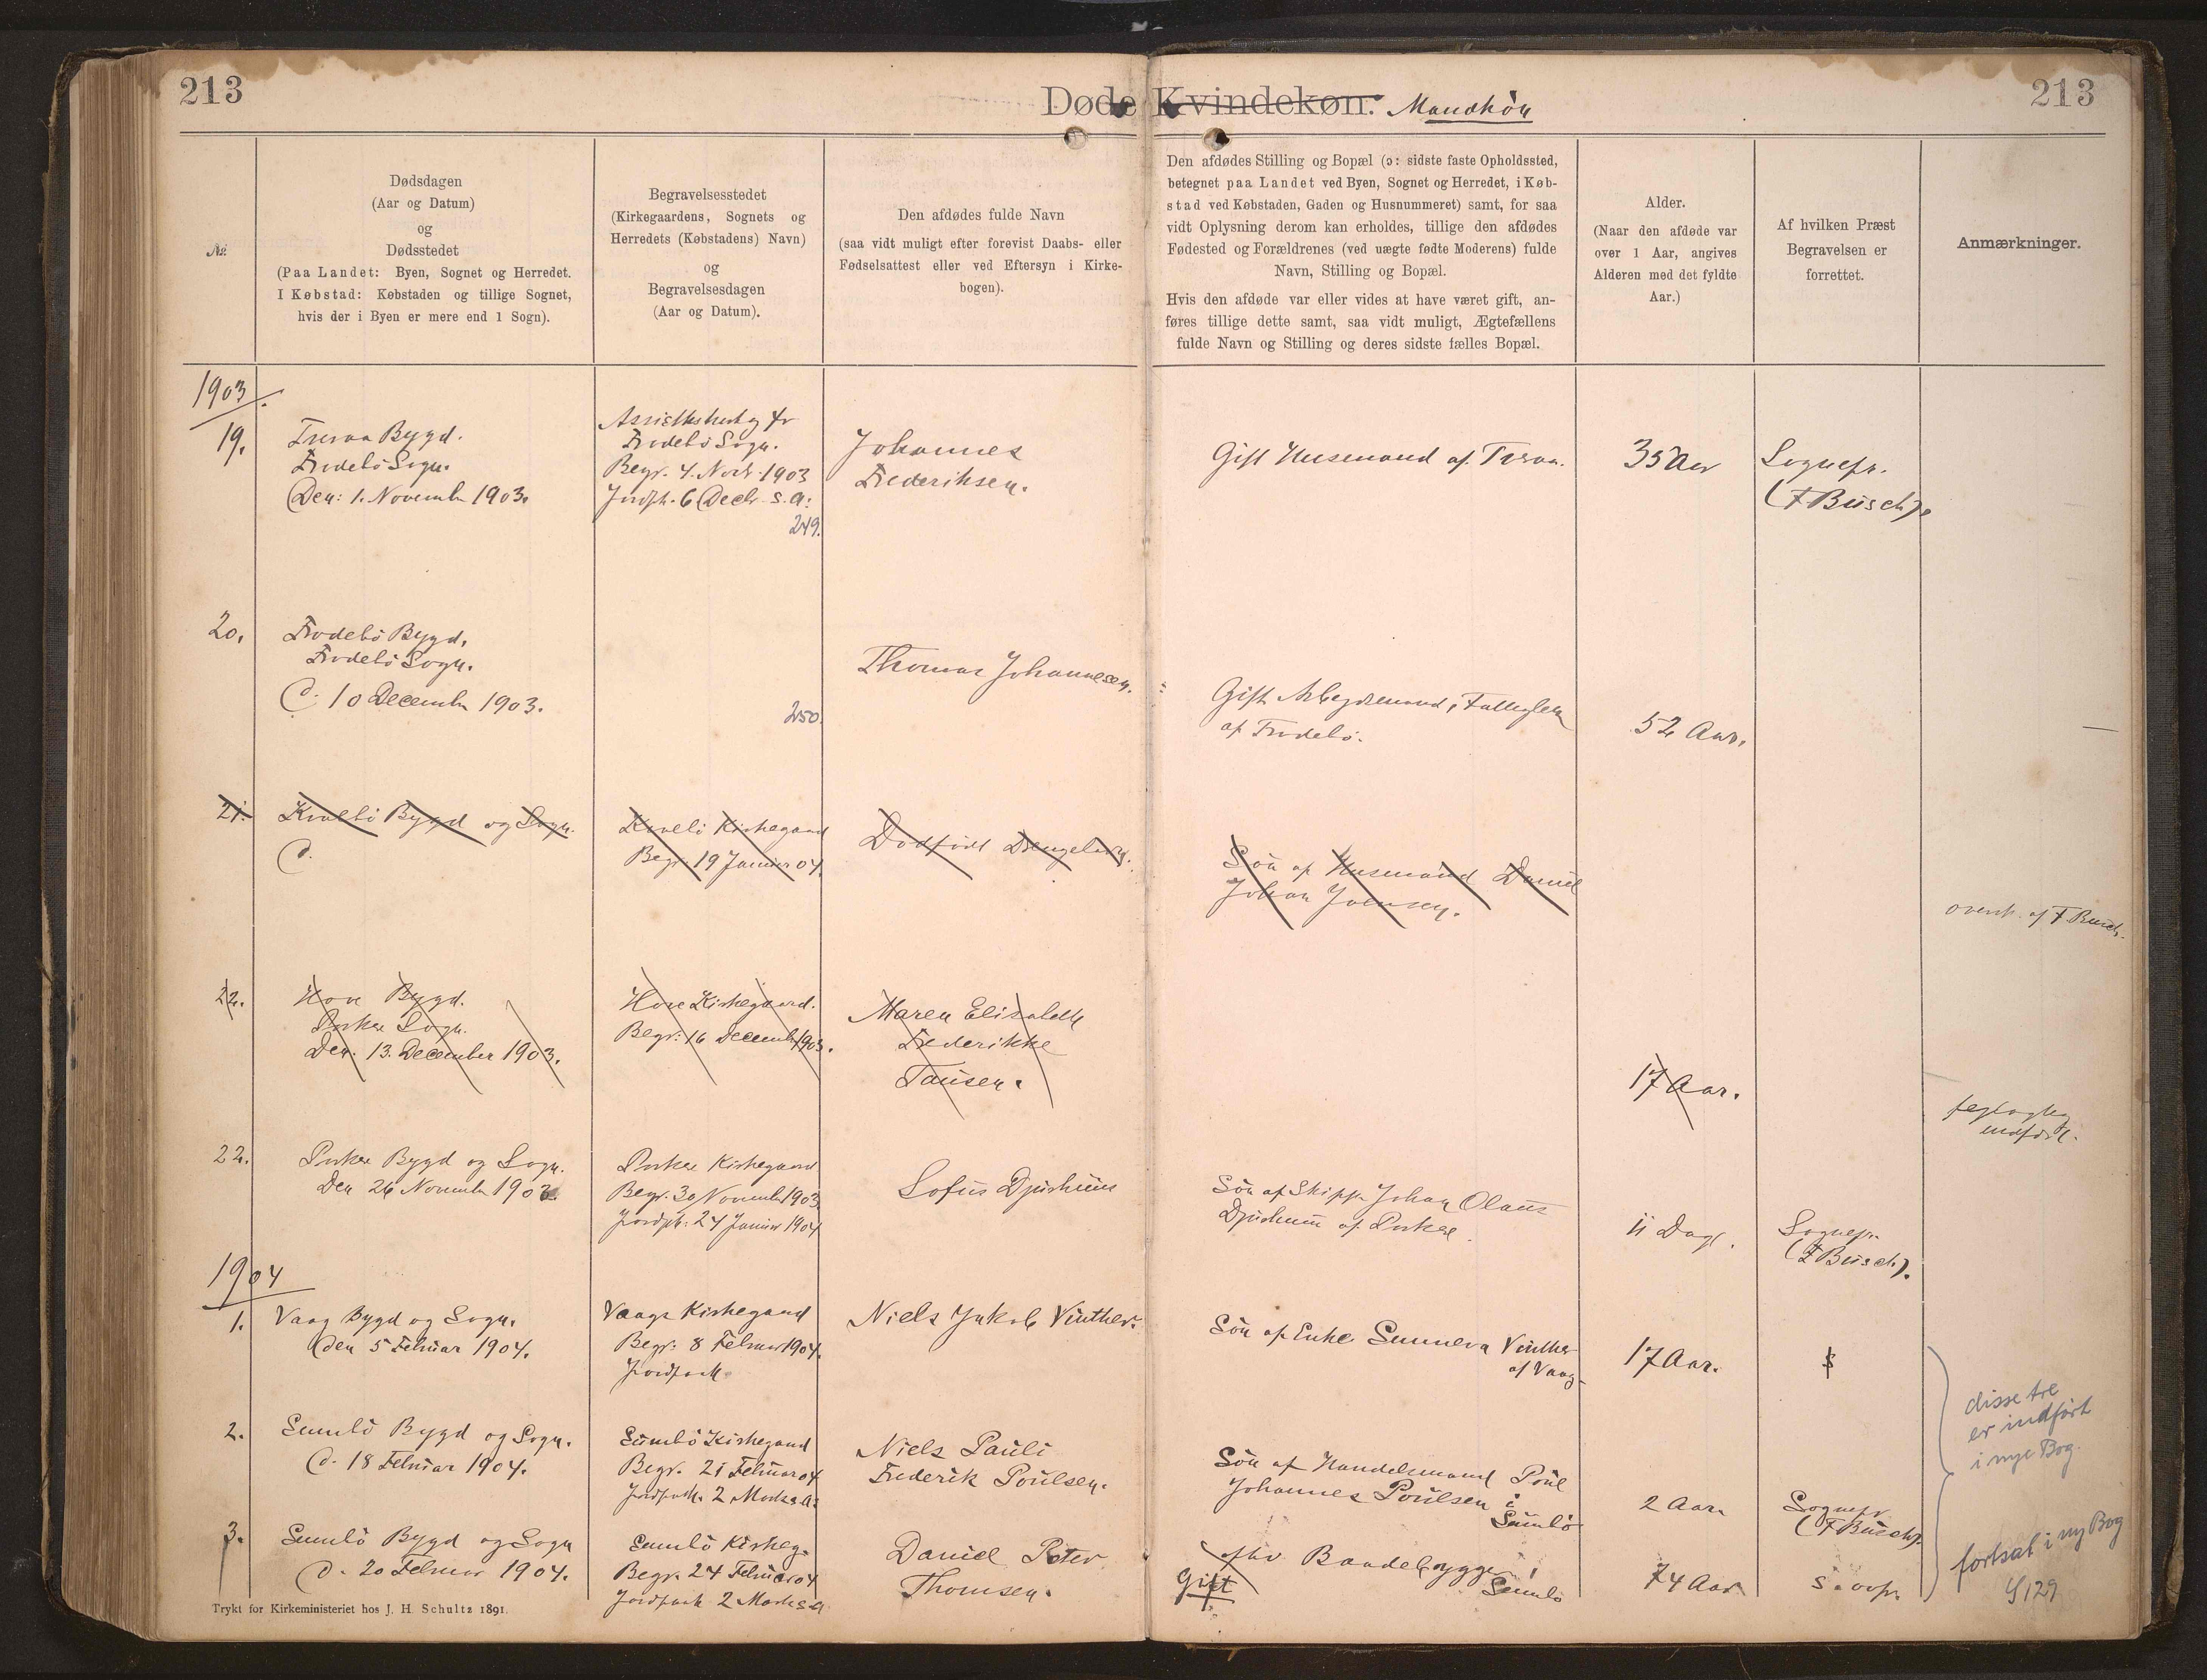 213
Døde Kvindekøn. Mandkön
213
№
Dødsdagen
(Aar og Datum)
og
Dødsstedet
(Paa Landet: Byen, Sognet og Herredet.
I Købstad: Købstaden og tillige Sognet,
hvis der i Byen er mere end 1 Sogn).
Begravelsesstedet
(Kirkegaardens, Sognets og
Herredets (Købstadens) Navn)
og
Begravelsesdagen
(Aar og Datum).
Den afdødes fulde Navn
(saa vidt muligt efter forevist Daabs- eller
Fødselsattest eller ved Eftersyn i Kirke-
bogen).
Den afdødes Stilling og Bopæl (ɔ: sidste faste Opholdssted,
betegnet paa Landet ved Byen, Sognet og Herredet, i Køb-
stad ved Købstaden, Gaden og Husnummeret) samt, for saa
vidt Oplysning derom kan erholdes, tillige den afdødes
Fødested og Forældrenes (ved uægte fødte Moderens) fulde
Navn, Stilling og Bopæl.
Hvis den afdøde var eller vides at have været gift, an-
føres tillige dette samt, saa vidt muligt, Ægtefællens
fulde Navn og Stilling og deres sidste fælles Bopæl.
Alder.
(Naar den afdøde var
over 1 Aar, angives
Alderen med det fyldte
Aar.)
Af hvilken Præst
Begravelsen er
forrettet.
Anmærkninger.
1903
19.
Bygd.
Frodebö Sogn.
Den: 1. November 1903.
Frodebö Sogn.
Begr. 4. Novb. 1903
Jordp. 6 Decbr. s. a:
249.
Johannes
Frederiksen.
Gift Husmand af
35 Aar
Sognepr.
(F Busch).
20.
Frodebö Bygd,
Frodebö Sogn.
d. 10 December 1903.
250.
Thomas Johannesen.
Gift Arbejdsmand, Fattiglem
af Frodebö.
52 Aar.
21.
Kvalbö Bygd og Sogn.
d.
Kvalbö Kirkegaard
Begr. 19 Januar 04.
Dödfödt Drengebarn.
Sön af Husmand Daniel
Johan Joensen.
overstr. af F. Busch.
22.
Hove Bygd.
Porkere Sogn.
Den. 13. December 1903.
Hove Kirkegaard.
Begr: 16 December 1903.
Maren Elisabeth
Frederikke
Tausen.
17 Aar.
fejlagtig
indfört.
22.
Porkere Bygd og Sogn.
Den 26 November 1903.
Porkere Kirkegaard
Begr. 30 November 1903
Jordpk: 24 Januar 1904
Lofus Djurhuus
Sön af Skipper Johan Olaus
Djurhuus af Porkere.
11 Dage.
Sognepr.
(F Busch).
1904
1.
Vaag Bygd og Sogn.
den 5 Februar 1904.
Vaags Kirkegaard
Begr: 8 Februar 1904.
Jordpask
Niels Jakob Vinther.
Sön af Enke Sunneva Vinther
af Vaag
17 Aar.
disse tre
er indfört
i nye Bog.
2.
Sumbö Bygd og Sogn.
d. 18 Februar 1904.
Sumbö Kirkegaard
Begr. 21 Februar 04
Jordpask. 2 Marts s. a:
Niels Pauli
Frederik Poulsen.
Sön af Handelsmand Poul
Johannes Poulsen i
Sumbö
2 Aar.
Sognepr
(F Busch).
3.
Sumbö Bygd og Sogn
d. 20 Februar 1904.
Sumbö Kirkeg.
Begr. 24 Februar 04
Jordpask 2 Marts s. a
Daniel Peter
Thomsen.
Gift
Baadebygger i
Sumbö
74 Aar
s. ovfr.
fortsat i ny Bog
S 129
Trykt for Kirkeministeriet hos J. H. Schultz 1891.